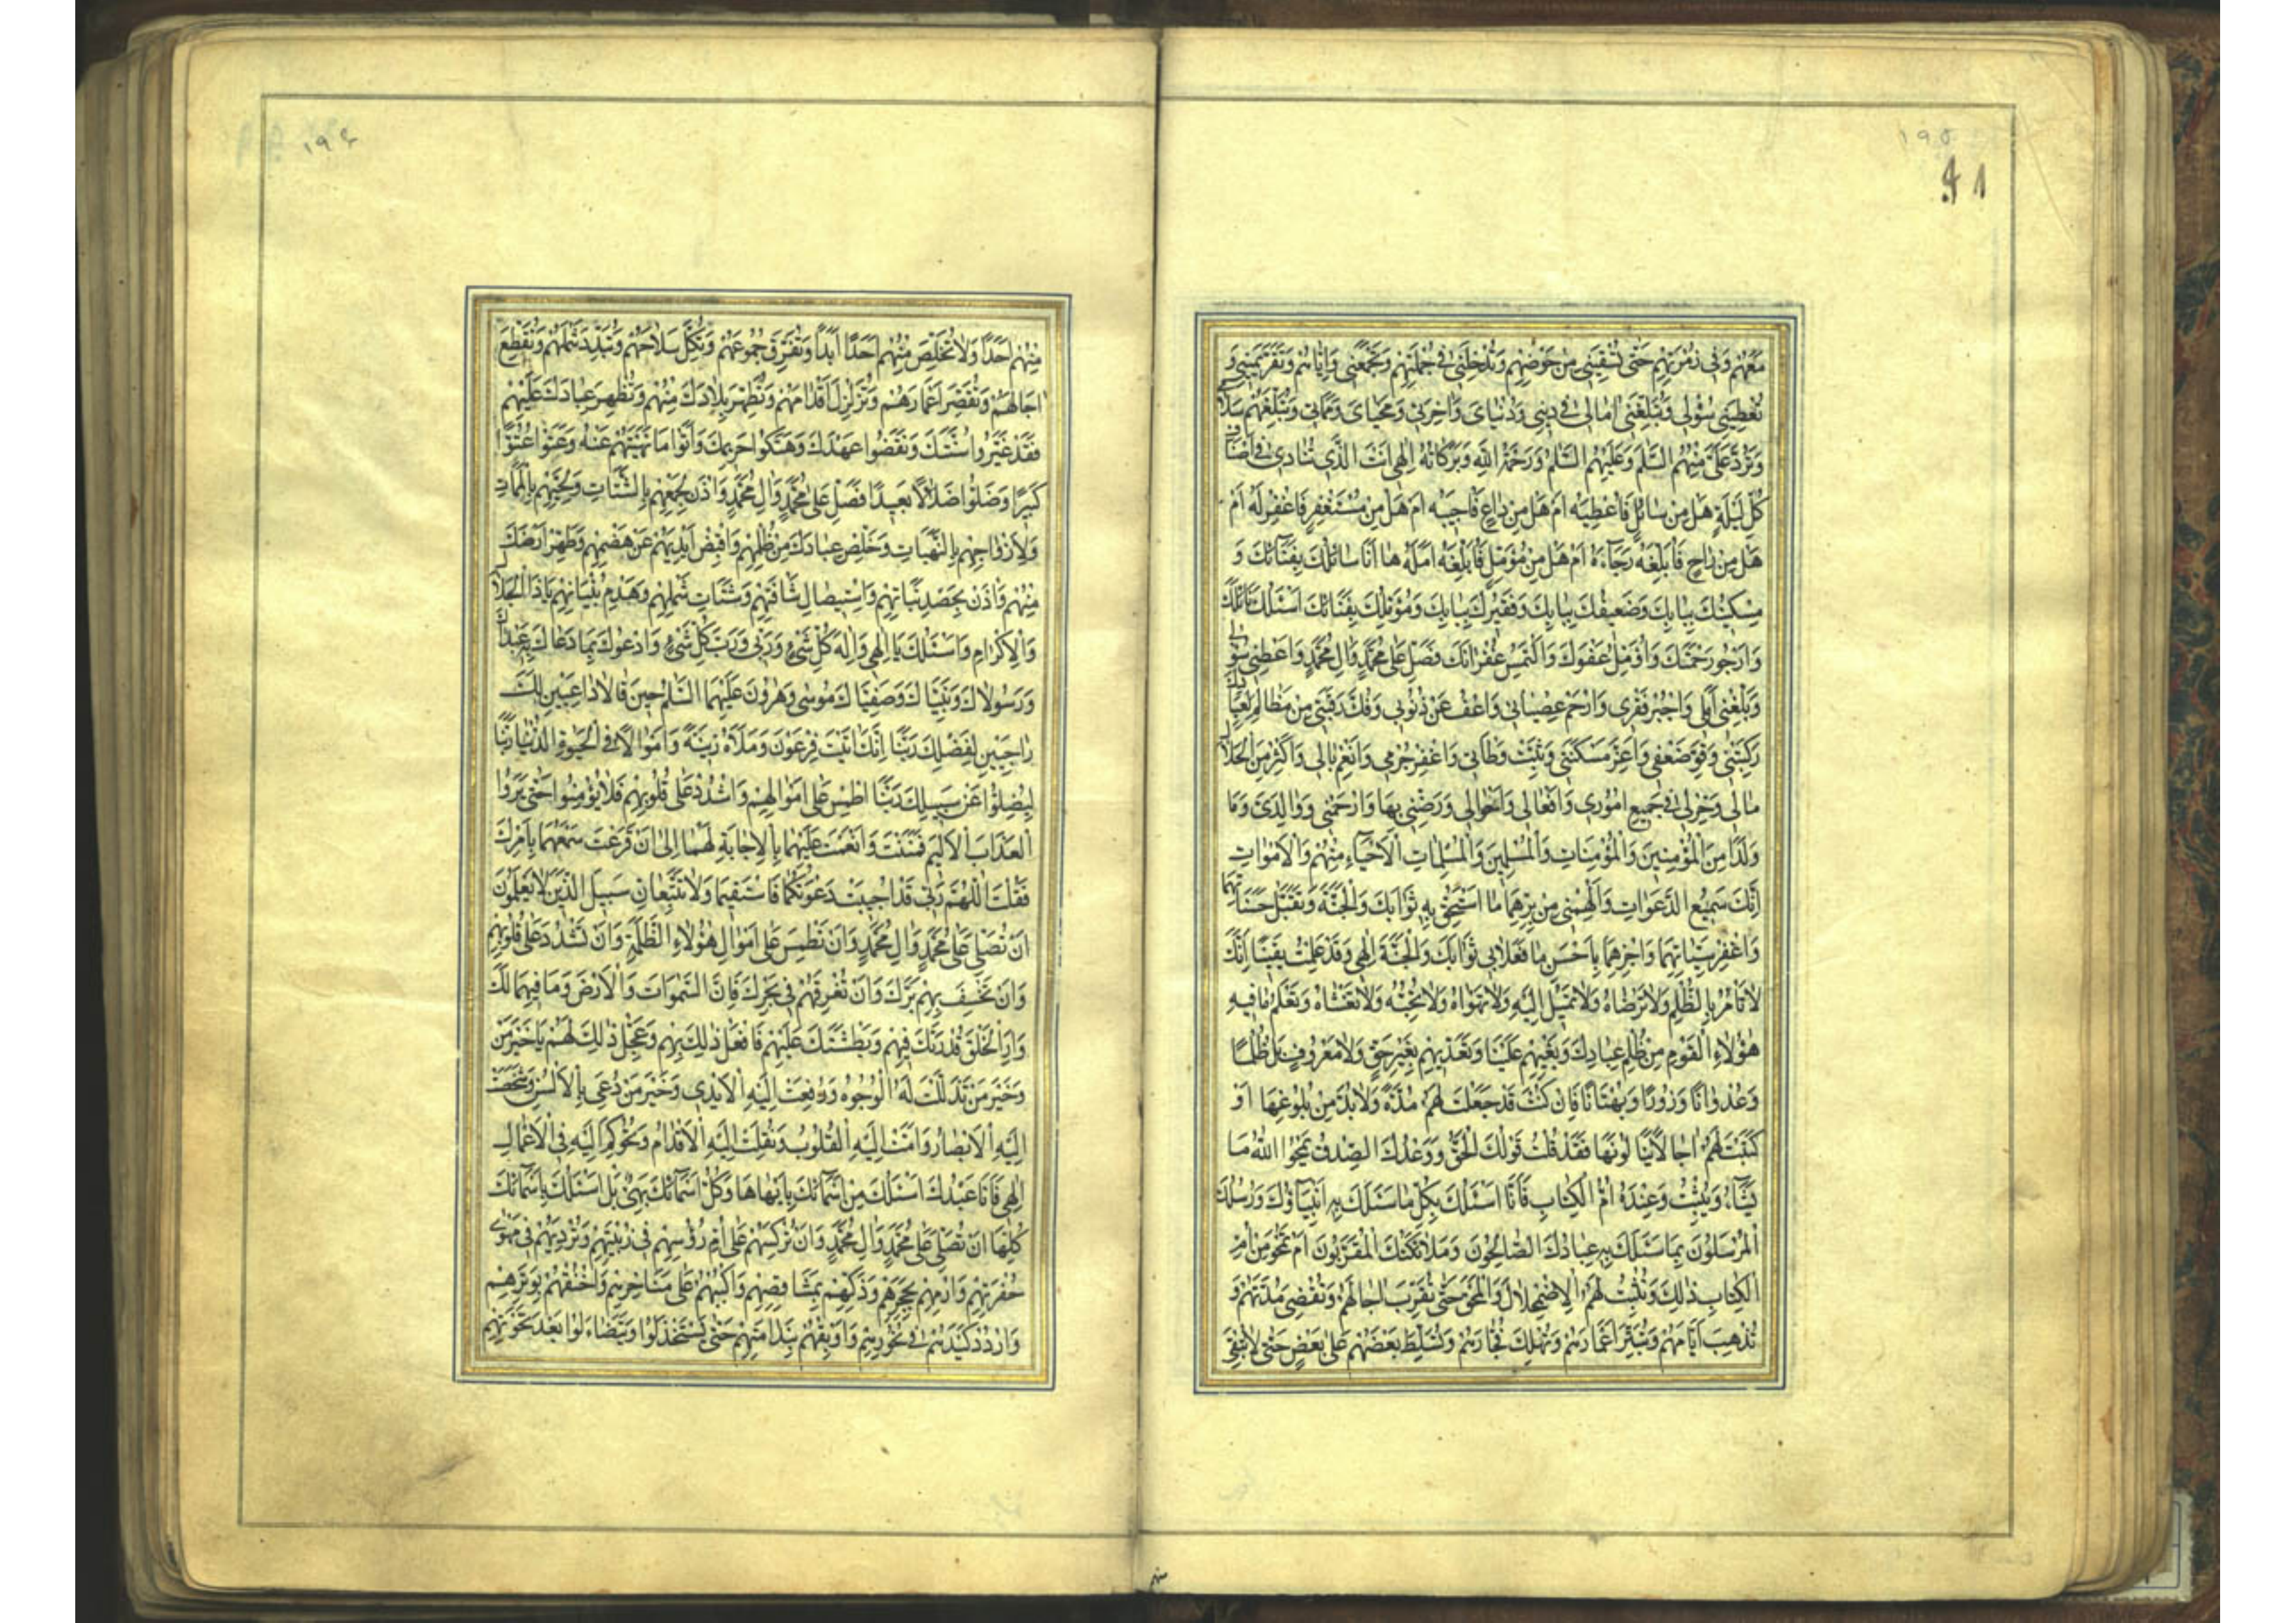 ۱۹۵
مَعَهُم وَفی زُمْرَتِهِم حَتّی تُسْقِیَنی مِن حَوْضِهِم وَتُدْخِلَنی فی جُمْلَتِهِم وَتَجْمَعَنی وَاِیّاهُم وَتُقِرَّ عَیْنی وَ
تُعْطِیَنی سُؤْلی وَتُبَلِّغَنی امالی فی دینی وَدُنْیایَ وَاخِرَتی وَمَحْیایَ وَمَماتی وَتُبَلِّغَهُم سَلامی
وَتَرُدَّ عَلَیَّ مِنْهُمُ السَّلمَ وَعَلَیْهِمُ السَّلمُ وَرَحْمَةُ اللهِ وَبَرَکاتُهُ اِلهی اَنْتَ الَّذی تُنادی فی اَنْصافِ
کُلِّ لَیْلَةٍ هَلْ مِن سائِلٍ فَاُعْطِیَهُ اَم هَلْ مِن داعٍ فَاُجیبَهُ اَم هَلْ مِن مُسْتَغْفِرٍ فَاَغْفِرَ لَهُ اَم
هَلْ مِن راجٍ فَاُبَلِّغَهُ رَجآءَهُ اَم هَلْ مِن مُؤَمِّلٍ فَاُبَلِّغَهُ اَمَلَهُ ها اَنَا سائِلُکَ بِفِنآئِکَ وَ
مِسْکینُکَ بِبابِکَ وَضَعیفُکَ بِبابِکَ وَفَقیرُکَ بِبابِکَ وَمُؤَمِّلُکَ بِفِنائِکَ اَسْئَلُکَ نائِلَکَ
وَاَرْجُو رَحْمَتَکَ وَاُؤَمِّلُ عَفْوَکَ وَاَلْتَمِسُ غُفْرانَکَ فَصَلِّ عَلی مُحَمَّدٍ وَالِ مُحَمَّدٍ وَاَعْطِنی سُؤْلی
وَبَلِّغْنی اَمَلی وَاجْبُرْ فَقْری وَارْحَمْ عِصْیانی وَاعْفُ عَنْ ذُنُوبی وَفُکَّ رَقَبَتی مِن مَظالِمِ لِعِبادِکَ
رَکِبَتْنی وَقَوِّ ضَعْفی وَاَعِزَّ مَسْکَنَتی وَثَبِّتْ وَطْاَتی وَاغْفِرْ جُرْمی وَانْعِمْ بالی وَاَکْثِرْ مِنَ الْحَلالِ
مالی وَخِرْ لی فی جَمیعِ اُمُوری وَاَفْعالی وَاَحْوالی وَرَضِّنی بِها وَارْحَمْنی وَوالِدَیَّ وَما
وَلَدا مِنَ الْمُؤْمِنینَ وَالْمُؤْمِناتِ وَالْمُسْلِمینَ وَالْمُسْلِماتِ الْاَحْیآءِ مِنْهُم وَالْاَمْواتِ
اِنَّکَ سَمیعُ الدَّعَواتِ وَاَلْهِمْنی مِن بِرِّهِما ما اَسْتَحِقُّ بِهِ ثَوابَکَ وَالْجَنَّةَ وَتَقَبَّلْ حَسَناتِهِما
وَاغْفِرْ سَیِّئاتِهِما وَاجْزِهِما بِاَحْسَنِ ما فَعَلا بی ثَوابَکَ وَالْجَنَّةَ اِلهی وَقَدْ عَلِمْتُ یَقینًا اَنَّکَ
لا تَأْمُرُ بِالظُّلْمِ وَلا تَرْضاهُ وَلا تَمیلُ اِلَیْهِ وَلا تَهْواهُ وَلا تُحِبُّهُ وَلا تَغْشاهُ وَتَعْلَمُ ما فیهِ
هؤُلاءِ الْقَوْمِ مِن ظُلْمِ عِبادِکَ وَبَغْیِهِم عَلَیْنا وَتَعَدّیهِم بِغَیْرِ حَقٍّ وَلا مَعْرُوفٍ بَلْ ظُلْمًا
وَعُدْوانًا وَزُورًا وَبُهْتانًا فَاِن کُنْتَ قَدْ جَعَلْتَ لَهُم مُدَّةً لابُدَّ مِن بُلُوغِها اَوْ
کَتَبْتَ لَهُم اجالًا یَنالُونَها فَقَدْ قُلْتَ قَوْلُکَ الْحَقُّ وَوَعْدُکَ الصِّدْقُ یَمْحُوا اللهُ ما
یَشآءُ وَیُثْبِتُ وَعِنْدَهُ اُمُّ الْکِتابِ فَاَنَا اَسْئَلُکَ بِکُلِّ ما سَئَلَکَ بِهِ اَنْبِیآؤُکَ وَرُسُلُکَ
الْمُرْسَلُونَ بِما سَئَلَکَ بِهِ عِبادُکَ الصّالِحُونَ وَمَلائِکَتُکَ الْمُقَرَّبُونَ اَن تَمْحُوَ مِن اُمِّ
الْکِتابِ ذلِکَ وَتُثْبِتَ لَهُمُ الْاِضْمِحْلالَ وَالْمَحْوَ حَتّی تُقَرِّبَ اجالَهُم وَتَقْضِیَ مُدَّتَهُم وَ
تُذْهِبَ اَیّامَهُم وَتُبَتِّرَ اَعْمارَهُم وَتُهْلِکَ فُجّارَهُم وَتُسَلِّطَ بَعْضَهُم عَلی بَعْضٍ حَتّی لا تُبْقِیَ
۱۹۶
مِنْهُم اَحَدًا وَلا تُخَلِّصَ مِنْهُم اَحَدًا اَبَدًا وَتُفَرِّقَ جُمُوعَهُم وَتُکِلَّ سَلاحَهُم وَتُبَدِّدَ شَمْلَهُم وَتُقَطِّعَ
اجالَهُم وَتُقَصِّرَ اَعْمارَهُم وَتُزَلْزِلَ اَقْدامَهُم وَتُطَهِّرَ بِلادَکَ مِنْهُم وَتُظْهِرَ عِبادَکَ عَلَیْهِم
فَقَدْ غَیَّرُوا سُنَّتَکَ وَنَقَضُوا عَهْدَکَ وَهَتَکُوا حَریمَکَ وَاَتَوْا ما نَهَیْتَهُم عَنْهُ وَعَتَوْا عُتُوًّا
کَبیرًا وَضَلُّوا ضَلالًا بَعیدًا فَصَلِّ عَلی مُحَمَّدٍ وَالِ مُحَمَّدٍ وَاْذَن لِجَمْعِهِم بِالشَّتاتِ وَلِحَیِّهِم بِالْمَماتِ
وَلِاَزْواجِهِم بِالنَّهَباتِ وَخَلِّصْ عِبادَکَ مِن ظُلْمِهِم وَاقْبِضْ اَیْدِیَهُم عَن هَضْمِهِم وَطَهِّرْ اَرْضَکَ
مِنْهُم وَاْذَن بِحَصَدِ نَباتِهِم وَاسْتیصالِ شافَتِهِم وَشَتاتِ شَمْلِهِم وَهَدْمِ بُنْیانِهِم یا ذَا الْجَلالِ
وَالْاِکْرامِ وَاَسْئَلُکَ یا اِلهی وَاِلهَ کُلِّ شَیْءٍ وَرَبّی وَرَبَّ کُلِّ شَیْءٍ وَاَدْعُوکَ بِما دَعاکَ بِهِ عَبْداکَ
وَرَسُولاکَ وَنَبِیّاکَ وَصَفِیّاکَ مُوسی وَهرُونَ عَلَیْهِمَا السَّلمُ حینَ قالا داعِیَیْنِ لَکَ
راجِیَیْنِ لِفَضْلِکَ رَبَّنا اِنَّکَ اتَیْتَ فِرْعَوْنَ وَمَلَاَهُ زینَةً وَاَمْوالًا فی الْحَیوةِ الدُّنْیا رَبَّنا
لِیُضِلُّوا عَنْ سَبیلِکَ رَبَّنَا اطْمِسْ عَلی اَمْوالِهِم وَاشْدُدْ عَلی قُلُوبِهِم فَلا یُؤْمِنُوا حَتّی یَرَوُا
الْعَذابَ الْاَلیمَ فَمَنَنْتَ وَاَنْعَمْتَ عَلَیْهِما بِالْاِجابَةِ لَهُما اِلی اَن قَرَعْتَ سَمْعَهُما بِاَمْرِکَ
فَقُلْتَ اللهُمَّ رَبّی قَدْ اُجیبَتْ دَعْوَتُکُما فَاسْتَقیما وَلا تَتَّبِعانِ سَبیلَ الَّذینَ لا یَعْلَمُونَ
اَن تُصَلِّیَ عَلی مُحَمَّدٍ وَالِ مُحَمَّدٍ وَاَن تَطْمِسَ عَلی اَمْوالِ هؤُلاءِ الظَّلَمَةِ وَاَن تَشْدُدَ عَلی قُلُوبِهِم
وَاَن تَخْسِفَ بِهِم بَرَّکَ وَاَن تُغْرِقَهُم فی بَحْرِکَ فَاِنَّ السَّمواتِ وَالْاَرْضَ وَما فیهِما لَکَ
وَاَرِ الْخَلْقَ قُدْرَتَکَ فیهِم وَبَطْشَتَکَ عَلَیْهِم فَافْعَلْ ذلِکَ بِهِم وَعَجِّلْ ذلِکَ لَهُم یا خَیْرَ مَن
وَخَیْرَ مَن تَذَلَّلَتْ لَهُ الْوُجُوهُ وَرُفِعَتْ اِلَیْهِ الْاَیْدی وَخَیْرَ مَن دُعِیَ بِالْاَلْسُنِ وَشَخَصَتْ
اِلَیْهِ الْاَبْصارُ وَاَمَّتْ اِلَیْهِ الْقُلُوبُ وَنُقِلَتْ اِلَیْهِ الْاَقْدامُ وَتُحُوکِمَ اِلَیْهِ فی الْاَعْمالِ
اِلهی فَاَنَا عَبْدُکَ اَسْئَلُکَ مِن اَسْمآئِکَ بِاَبْهاها وَکُلُّ اَسْمآئِکَ بَهِیٌّ بَلْ اَسْئَلُکَ بِاَسْمآئِکَ
کُلِّها اَن تُصَلِّیَ عَلی مُحَمَّدٍ وَالِ مُحَمَّدٍ وَاَن تُرْکِسَهُم عَلی اُمِّ رُؤُسِهِم فی زُبْیَتِهِم وَتُرْدِیَهُم فی مَهْوی
حُفْرَتِهِم وَارْمِهِم بِحَجَرِهِم وَذَکِّهِم بِمَشاقِصِهِم وَاکْبُبْهُم عَلی مَناخِرِهِم وَاخْنُقْهُم بِوَتَرِهِم
وَارْدُدْ کَیْدَهُم فی نُحُورِهِم وَاَوْبِقْهُم بِنَدامَتِهِم حَتّی یَسْتَخْذِلُوا وَیَتَضاءَلُوا بَعْدَ نَخْوَتِهِم